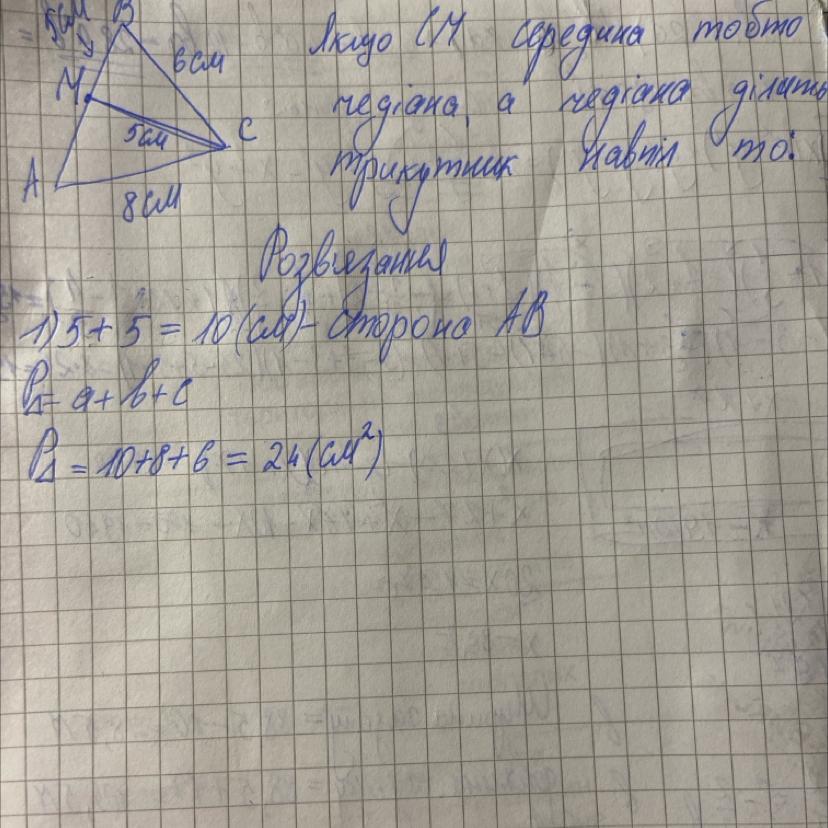 5см
B
6см
M
5см
C
A
8см
Якщо СМ середина тобто
медіана, а медіана ділить
трикутник навпіл то:
Розв'язання
1) 5 + 5 = 10 (см) - сторона AB
P△ = a + b + c
P△ = 10 + 8 + 6 = 24 (см²)